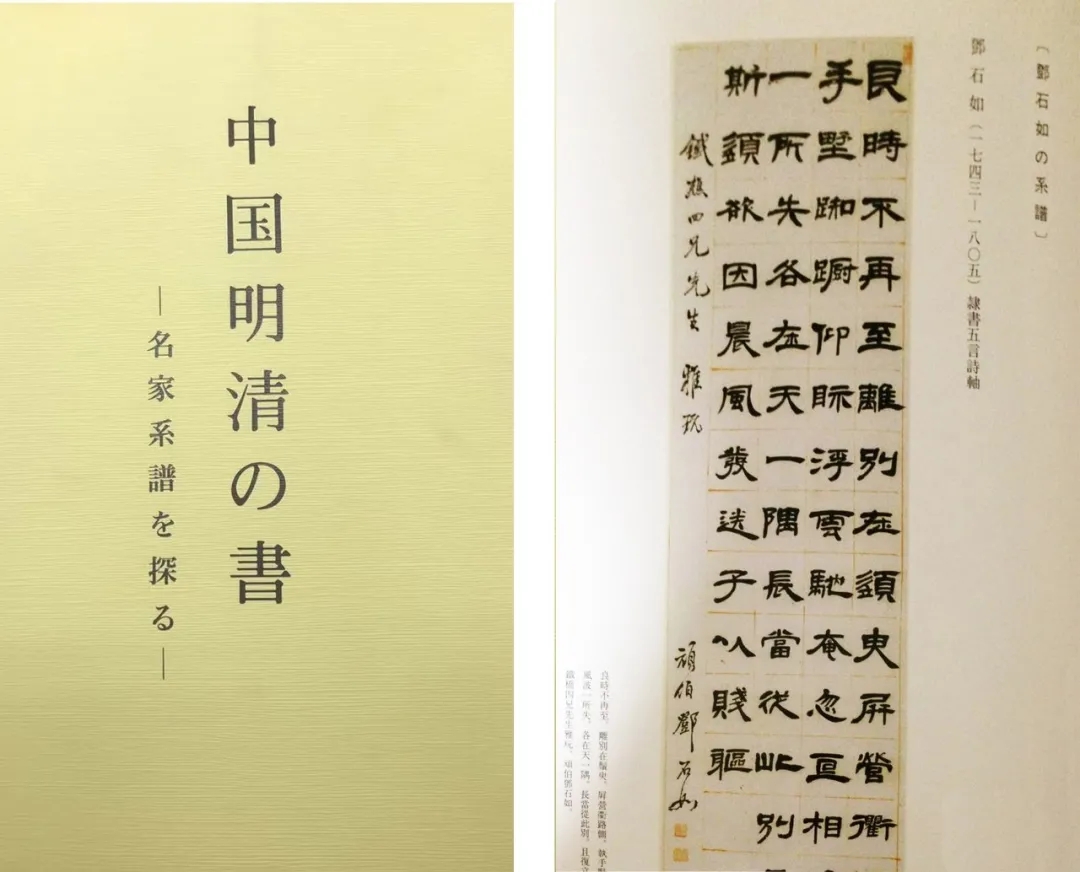 中国明清の書
―名家系譜を探る―
〔鄧石如の系譜〕
鄧石如（一七四三―一八〇五）隷書五言詩軸
良時不再至離別在須臾屏營衢
手墅踟蹰仰眎浮雲馳奄忽互相
一所失各在天一隅長當從此別
斯須欲因晨風發送子以賤軀
鐵樵四兄先生 雅玩 頑伯鄧石如
良時不再至、離別在須臾、屏營衢路側、執手
風波一所失、各在天一隅、長當從此別、且復立
鐵樵四兄先生雅玩、頑伯鄧石如。